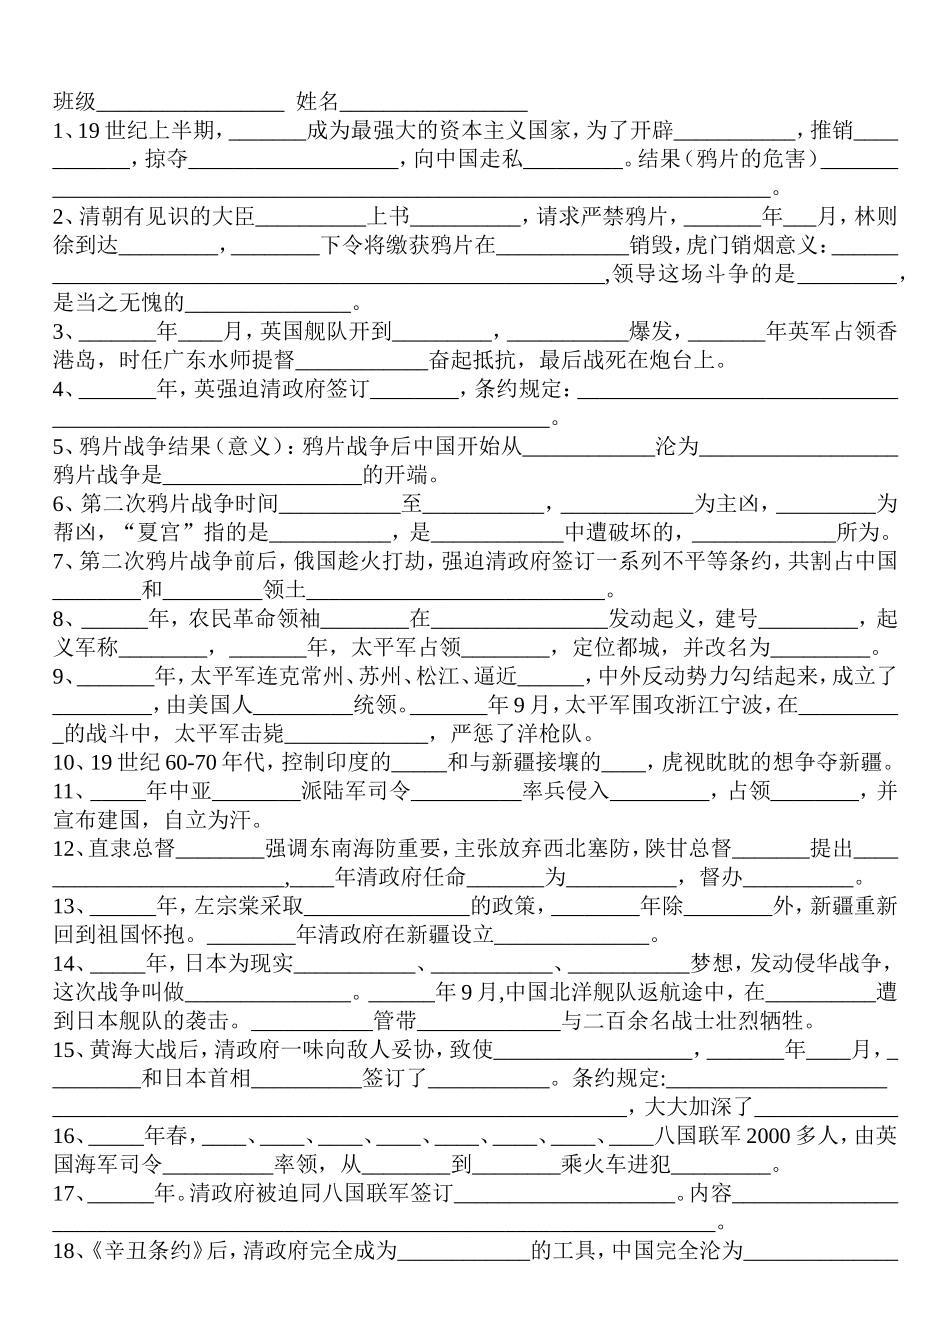 班级_________________ 姓名_________________
1、19 世纪上半期，_______成为最强大的资本主义国家，为了开辟___________，推销____
_______，掠夺___________________，向中国走私_________。结果（鸦片的危害）_______
_________________________________________________________________。
2、清朝有见识的大臣__________上书__________，请求严禁鸦片，_______年___月，林则
徐到达_________，________下令将缴获鸦片在____________销毁，虎门销烟意义：______
__________________________________________________,领导这场斗争的是_________，
是当之无愧的_______________。
3、_______年____月，英国舰队开到_________，___________爆发，_______年英军占领香
港岛，时任广东水师提督____________奋起抵抗，最后战死在炮台上。
4、_______年，英强迫清政府签订________，条约规定：_____________________________
_____________________________________________。
5、鸦片战争结果（意义）：鸦片战争后中国开始从____________沦为__________________
鸦片战争是__________________的开端。
6、第二次鸦片战争时间___________至___________，____________为主凶，_________为
帮凶，“夏宫”指的是___________，是____________中遭破坏的，_____________所为。
7、第二次鸦片战争前后，俄国趁火打劫，强迫清政府签订一系列不平等条约，共割占中国
________和_________领土___________________________。
8、______年，农民革命领袖________在________________发动起义，建号_________，起
义军称________，_______年，太平军占领________，定位都城，并改名为_________。
9、_______年，太平军连克常州、苏州、松江、逼近______，中外反动势力勾结起来，成立了
_________，由美国人_________统领。_______年 9 月，太平军围攻浙江宁波，在_________
_的战斗中，太平军击毙_____________，严惩了洋枪队。
10、19 世纪 60-70 年代，控制印度的_____和与新疆接壤的____，虎视眈眈的想争夺新疆。
11、_____年中亚________派陆军司令__________率兵侵入_________，占领________，并
宣布建国，自立为汗。
12、直隶总督________强调东南海防重要，主张放弃西北塞防，陕甘总督_______提出____
_____________________,____年清政府任命_______为__________，督办__________。
13、______年，左宗棠采取_______________的政策，________年除________外，新疆重新
回到祖国怀抱。________年清政府在新疆设立______________。
14、_____年，日本为现实___________、___________、___________梦想，发动侵华战争，
这次战争叫做_______________。______年 9 月,中国北洋舰队返航途中，在__________遭
到日本舰队的袭击。___________管带_____________与二百余名战士壮烈牺牲。
15、黄海大战后，清政府一味向敌人妥协，致使__________________，_______年____月，_
________和日本首相__________签订了___________。条约规定:____________________
____________________________________________________，大大加深了_____________
16、_____年春，____、____、____、____、____、____、____、____八国联军 2000 多人，由英
国海军司令__________率领，从________到________乘火车进犯_________。
17、______年。清政府被迫同八国联军签订____________________。内容_______________
____________________________________________________________。
18、《辛丑条约》后，清政府完全成为____________的工具，中国完全沦为______________